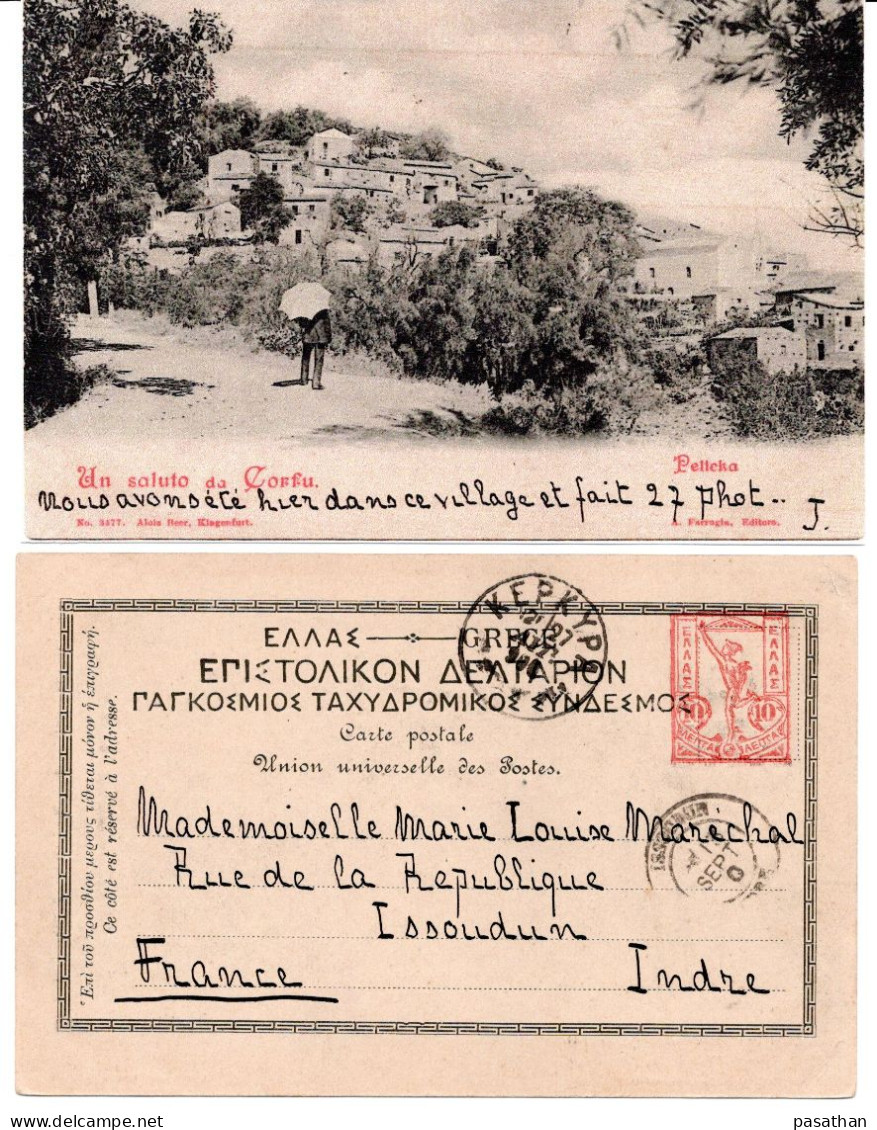 Un saluto da Corfu.
Pelleka
Nous avons été hier dans ce village et fait 27 phot.. J.
No. 3577. Alois Beer, Klagenfurt.
A. Farrugia, Editore.
ΕΛΛΑΣ GRÈCE
ΕΠΙΣΤΟΛΙΚΟΝ ΔΕΛΤΑΡΙΟΝ
ΠΑΓΚΟΣΜΙΟΣ ΤΑΧΥΔΡΟΜΙΚΟΣ ΣΥΝΔΕΣΜΟΣ
Carte postale
Union universelle des Postes.
ΚΕΡΚΥΡΑ
ΕΛΛΑΣ ΕΛΛΑΣ
10 10
ΛΕΠΤΑ ΛΕΠΤΑ
Ἐπὶ τοῦ προσθίου μέρους τίθεται μόνον ἡ ἐπιγραφή.
Ce côté est réservé à l'adresse.
Mademoiselle Marie Louise Marechal
Rue de la République
Issoudun
France Indre
SEPT
pasathan